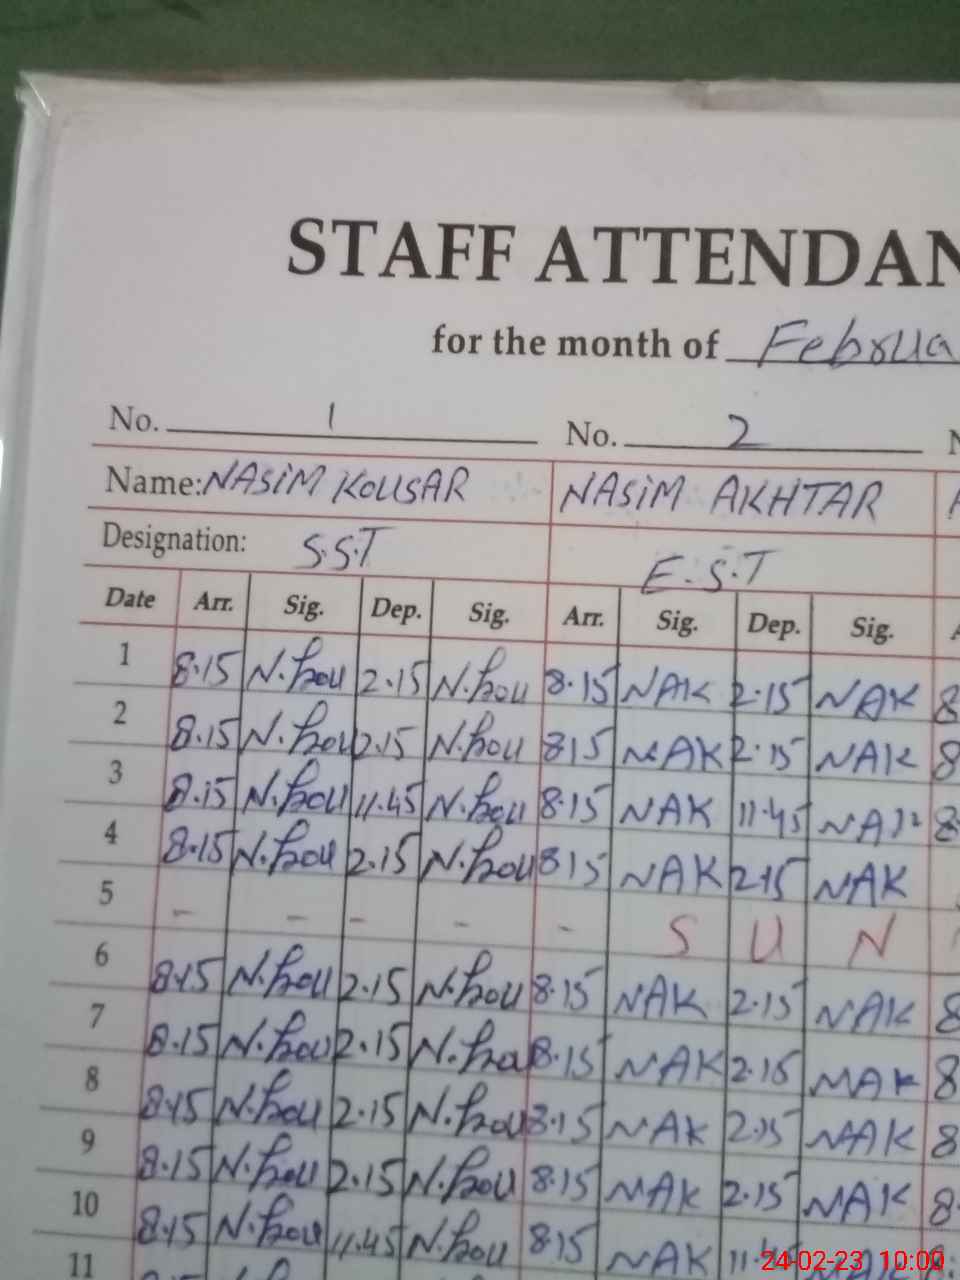 STAFF ATTENDAN
for the month of Februa
No. 1 No. 2
Name: NASIM KOUSAR NASIM AKHTAR
Designation: S.S.T E.S.T
Date Arr. Sig. Dep. Sig. Arr. Sig. Dep. Sig.
1 8.15 N.Kou 2.15 N.Kou 8.15 NAK 2.15 NAK 8
2 8.15 N.Kou 2.15 N.Kou 815 NAK 2.15 NAK 8
3 8.15 N.Kou 11.45 N.Kou 8.15 NAK 11.45 NAK 8
4 8.15 N.Kou 2.15 N.Kou 815 NAK 2.15 NAK
5 - - - - - S U N
6 8.15 N.Kou 2.15 N.Kou 8.15 NAK 2.15 NAK 8
7 8.15 N.Kou 2.15 N.Kou 8.15 NAK 2.15 NAK 8
8 8.15 N.Kou 2.15 N.Kou 8.15 NAK 2.15 NAK 8
9 8.15 N.Kou 2.15 N.Kou 8.15 NAK 2.15 NAK 8
10 8.15 N.Kou 11.45 N.Kou 8.15 NAK 11.45
11
24-02-23 10:00